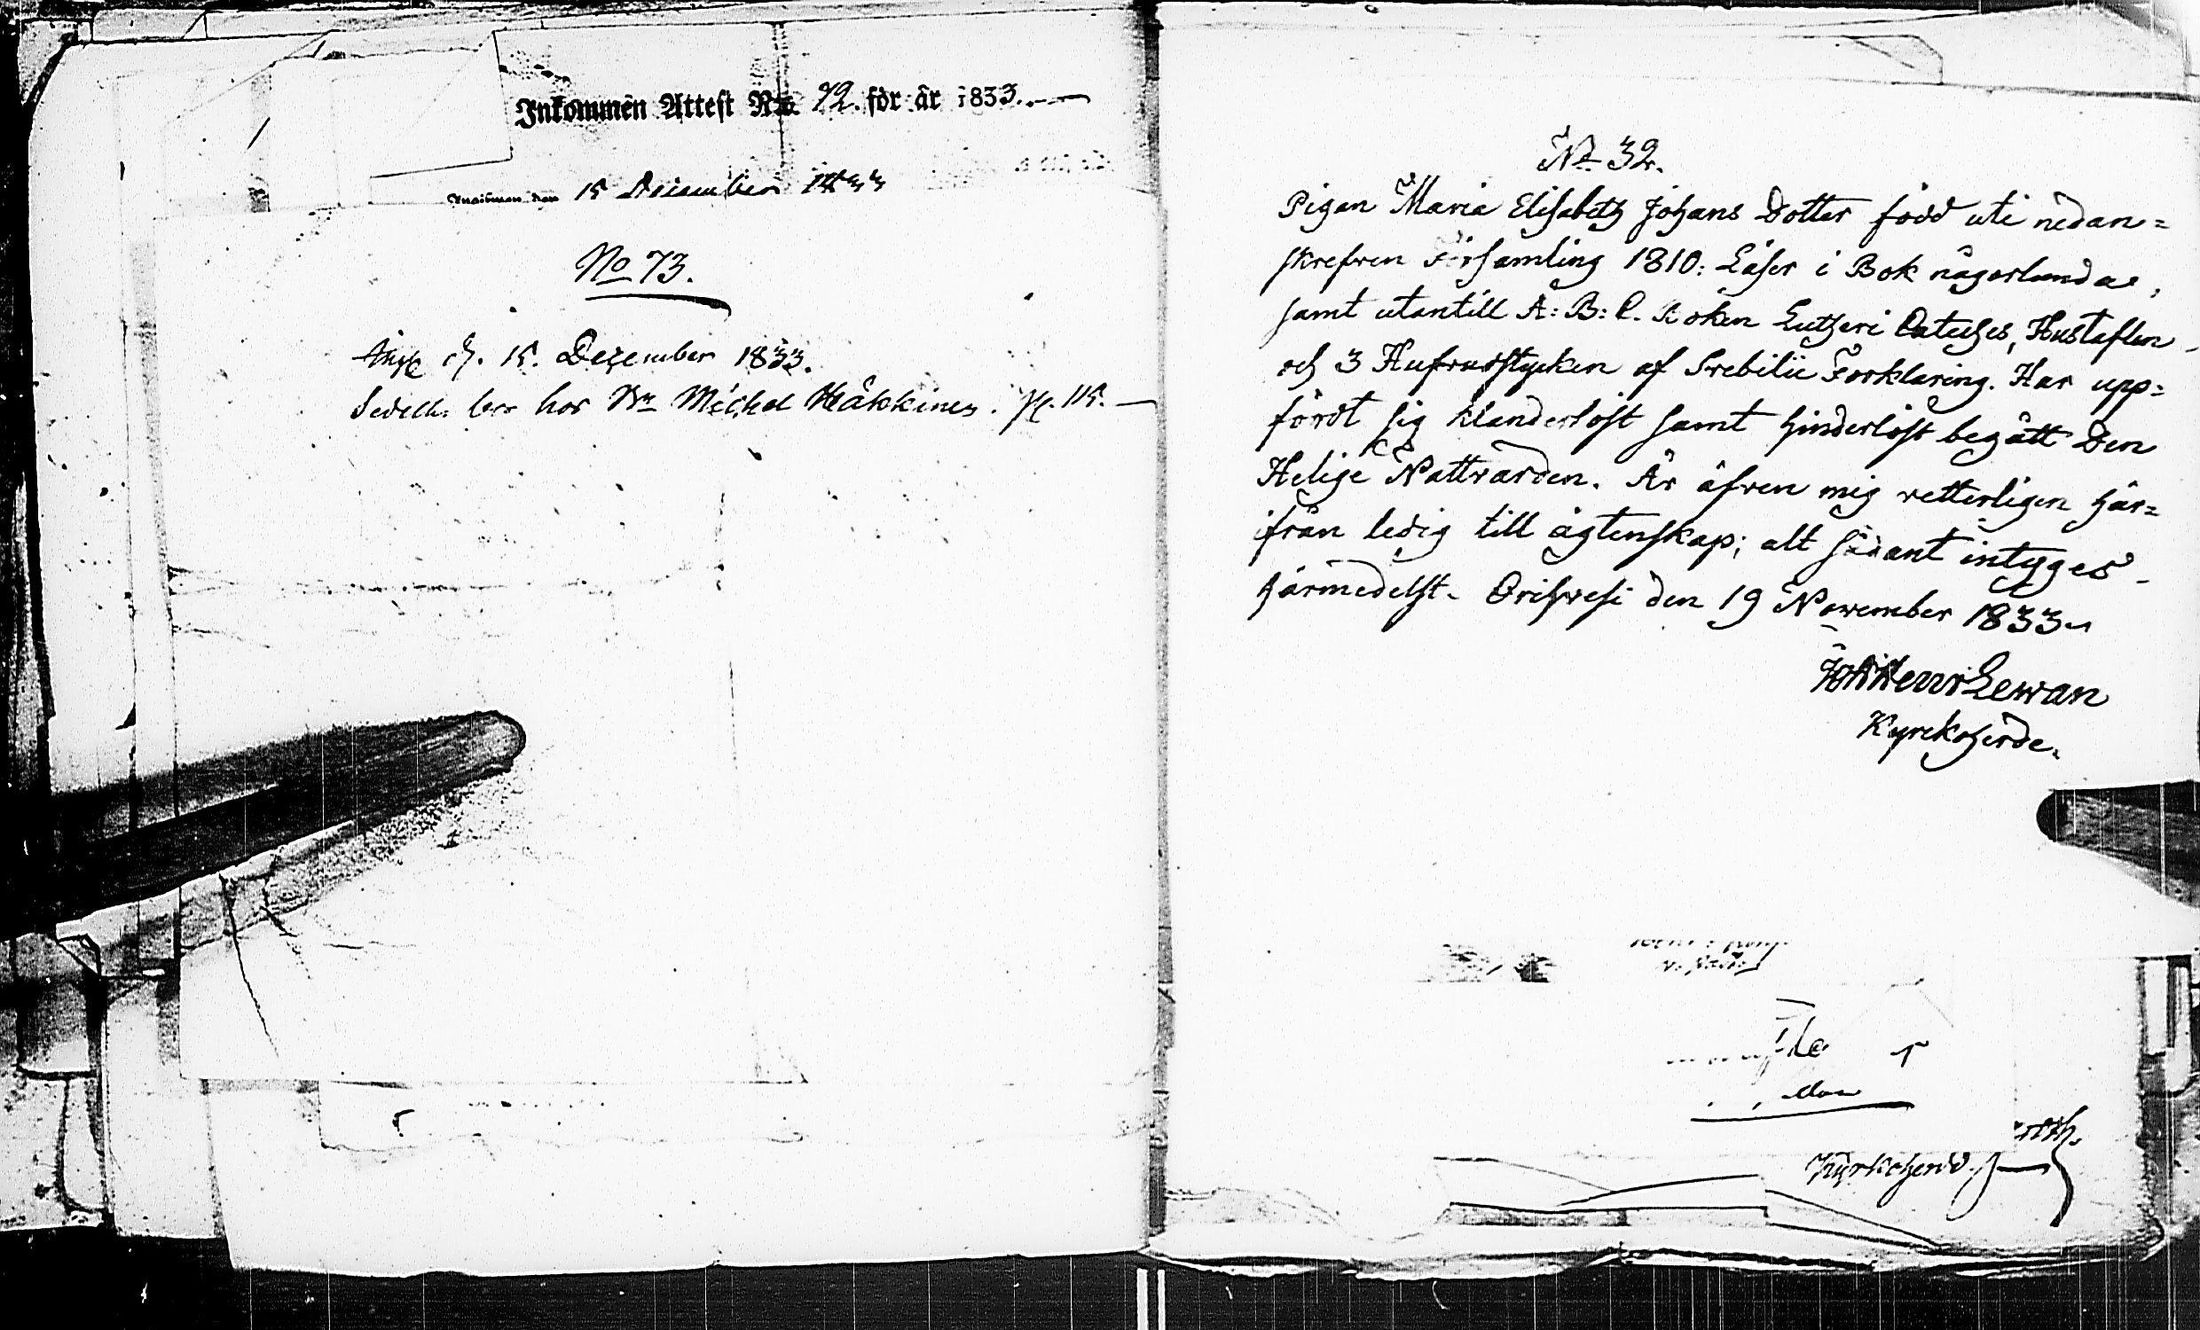 Inkommen Attest No. 72. för år 1833.
den 15 December 1833
No 73.
d. 15. December 1833.
hos Bn Michel Häkkinen. p. 115.
No 32.
Pigan Maria Elisabeth Johans Dotter född uti nedan=
skrefven Församling 1810: Läser i Bok någorlunda,
samt utantill A: B: C. Boken Lutheri Cateches, Hustaflan
och 3 Hufvudstycken af Svebilii Förklaring. Har upp=
fördt sig klanderlöst samt hinderlöst begått Den
Helige Nattvarden. Är äfven mig vetterligen här=
ifrån ledig till ägtenskap; alt sådant intyges
härmedelst. Oriswesi den 19 November 1833
Lewan
Kyrckoherde.
Kyrkoherde